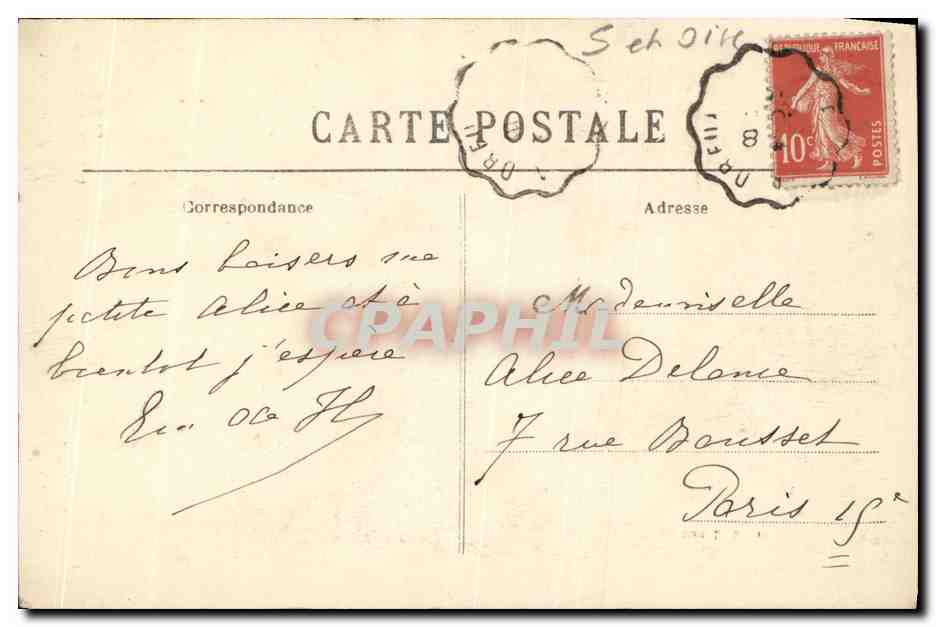 S et Oise
RÉPUBLIQUE FRANÇAISE
10c
POSTES
CARTE POSTALE
DREU
DREU
8
Correspondance
Adresse
Bons baisers ma
petite Alice et à
bientôt j'espère
Mademoiselle
Alice Delome
7 rue Bousset
Paris 15e
CPAPHIL